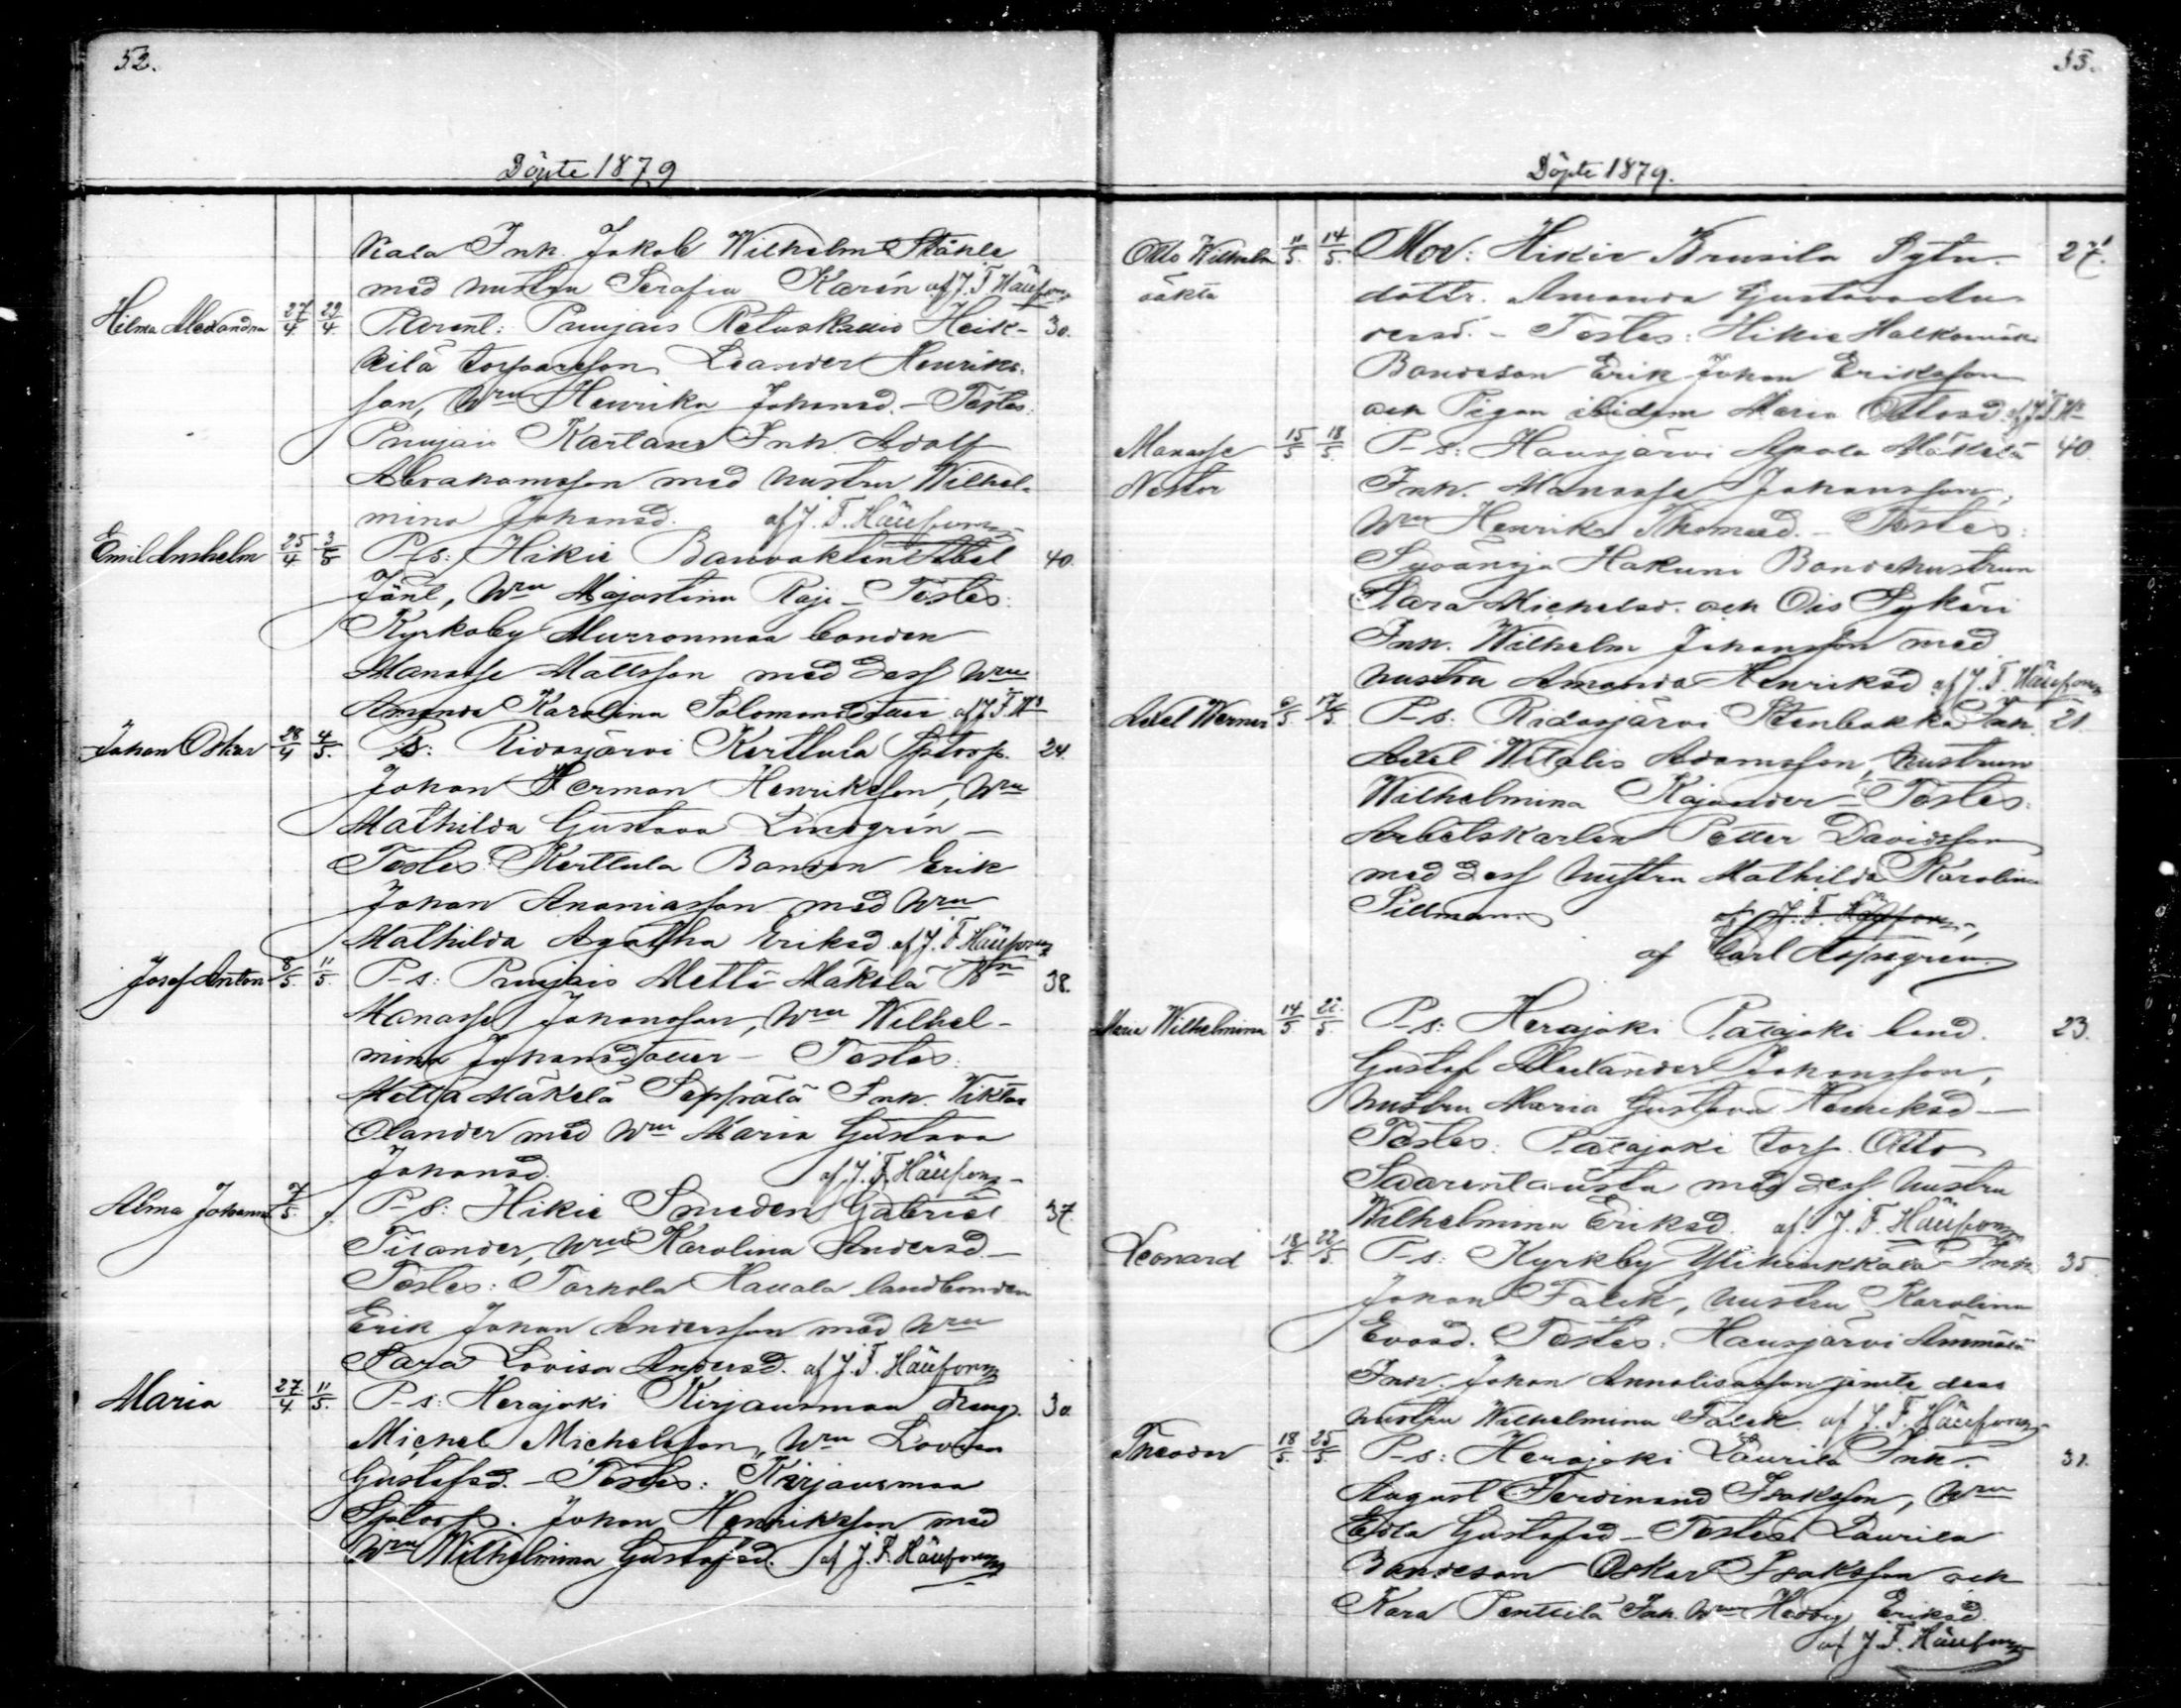 52.
Döpte 1879
Kala Inh. Jakob Wilhelm Ståhle
med hustru Serafia Karin af J. F. Häufom
Hilma Alexandra 27/4 29/4 Parent: Punjais Retuskallio Heik- 30.
kilä torparson Leander Henriks-
son, Wru Henrika Johansd. – Testes:
Punjais Inh. Adolf
Abrahamsson med hustru Wilhel-
mina Johansd. af J. F. Häufom
Emil Anshelm 25/4 3/5 P-s: Hikie Banvakten Abel 40.
Wru Majastina – Testes:
Kyrkoby Murronmaa bonden
Manasse Mattsson med dess Wru
Amanda Karolina Salomonsdotter af J. F. H
Johan Oskar 28/4 4/5. P-s: Ridasjärvi Kerttula Sptorp. 24.
Johan Herman Henriksson, Wru
Mathilda Gustava Lindgrén –
Testes: Kerttula Bonden Erik
Johan Ananiasson med Wru
Mathilda Agatha Eriksd. af J. F. Häufom
Josef Anton 8/5. 11/5. P-s: Punjais Metti Mäkelä 38.
Manasse Johansson, Wru Wilhel-
mina Johansdotter – Testes:
Mäkelä Seppälä Inh. Viktor
Olander med Wru Maria Gustava
Johansd. af J. F. Häufom
Alma Johanna 7/5. P-s: Hikie Smeden Gabriel 37.
Tisander, Wru Karolina Andersd. –
Testes: Torhola Hauala landbonden
Erik Johan Andersson med Wru
Sara Lovisa Andersd. af J. F. Häufom
Maria 27/4 11/5. P-s: Herajoki Kirjausmaa dräng. 30
Michel Michelsson, Wru Lovisa
Gustafsd. – Testes: Kirjausmaa
Sptorp. Johan Henriksson med
Wru Wilhelmina Gustafsd. af J. F. Häufom
53.
Döpte 1879.
Otto Wilhelm 11/5. 14/5. Mod: Hikie Brusila Sytn- 27.
oäkta dottr. Amanda Gustava An-
dersd. – Testes: Hikie Halkomäki
Bondeson Erik Johan Eriksson
och Pigan ibidem Maria Ottosd. af J. F. H
Manasse 15/5 18/5. P-s: Hausjärvi Apola Mäkelä 40.
Nestor Inh. Manasse Johansson,
Wru Henrika Thomasd. – Testes:
Syvänoja Hakuni Bondehustrun
Sara Michelsd. och Ois Sykäri
Inh. Wilhelm Johansson med
hustru Amanda Henriksd af J. F. Häufom
Axel Werner 6/5. 17/5. P-s: Ridasjärvi Stenbakka Inh. 21.
Axel Witalis Adamsson, hustrun
Wilhelmina Kajander – Testes:
Arbetskarlen Petter Davidsson
med dess hustru Mathilda Karolina
Sillman af J. F. Häufom,
af Carl Aspegren
Maria Wilhelmina 14/5 22/5 P-s: Herajoki Patajoki bond. 23.
Gustaf Alexander Johansson,
hustru Maria Gustava Henriksd –
Testes: Patajoki torp. Otto
Saarentausta med dess hustru
Wilhelmina Eriksd. af J. F. Häufom
Leonard 18/5. 22/5. P-s: Kyrkby Ylihinkkala Inh. 35
Johan Falck, hustru Karolina
Evasd. Testes: Hausjärvi Ämmälä
Inh. Johan Annalisasson jemte dess
hustru Wilhelmina Falck af J. F. Häufom
Theodor 18/5. 25/5. P-s: Herajoki Laurila Inh. 31.
August Ferdinand Isaksson, Wru
Edla Gustafsd – Testes: Laurila
Bondeson Oskar Isaksson och
Kara Penttilä Inh. Wru Hedvig Eriksd
af J. F. Häufom